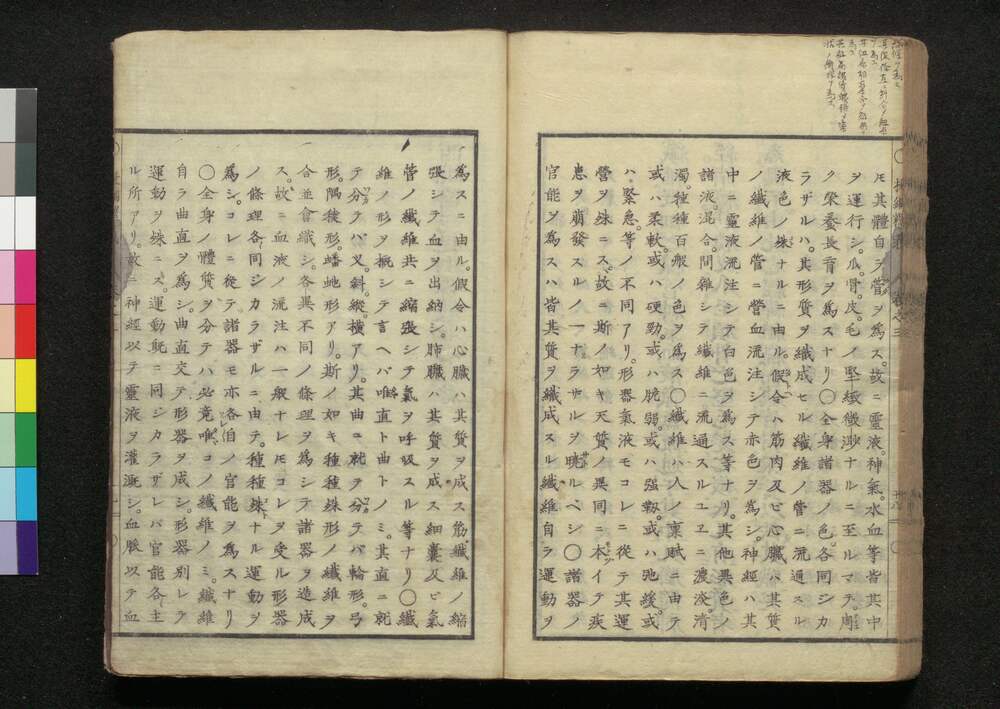 ﾄモ其體自ラ管ヲ爲ス。故ニ靈液。神氣。水血等皆其中
ヲ運行シ。爪。骨。皮。毛ノ堅緻微渺ナルニ至ルマデ。剛
ク榮養長育ヲ爲スナリ〇全身諸器ノ色。各同シカ
ラザルハ。其形質ヲ織成セル纖維ノ管ニ流通スル
液色ノ殊ナルニ由ル。假令ハ筋肉及ビ心臟ハ其質
ノ纖維ノ管ニ營血流注シテ赤色ヲ爲シ。神經ハ其
中ニ靈液流注シテ白色ヲ爲ス等ナリ。其他異色ノ
諸液。混合。間雜シテ纖維ニ流通スルユヱニ濃淺。清
濁。種種百般ノ色ヲ爲ス〇纖維ハ人ノ稟賦ニ由テ
或ハ柔軟。或ハ硬勁。或ハ脆弱。或ハ強靱。或ハ弛緩。或
ハ緊急。等ノ不同アリ。形器氣液モコレニ從テ其運
營ヲ殊ニス。故ニ斯ノ如キ天質ノ異同ニ本イテ疾
患ヲ崩發スルノ一ナラサルヲ曉ルベシ〇諸器ノ
官能ヲ爲スハ皆其質ヲ織成スル纖維自ラ運動ヲ
爲スニ由ル。假令ハ心臟ハ其質ヲ成ス筋纖維ノ縮
張シテ血ヲ出納シ。肺臟ハ其質ヲ成ス細囊及ビ氣
管ノ纖維共ニ縮張シテ氣ヲ呼吸スル等ナリ〇纖
維ノ形ヲ概シテ言ヘバ唯直ト曲トノミ。其直ニ就
テ分テバ。叉。斜。縱。横アリ。其曲ニ就テ分テバ輪形。弓
形。隅徒形。蟠虵形アリ。斯ノ如キ種種殊形ノ纖維ヲ
合並會織シ。各異不同ノ條理ヲ爲シテ諸器ヲ造成
ス。故ニ血液ノ流注ハ一般ナレモコレヲ受ル形器
ノ條理各同シカラザルニ由テ。種種殊ナル運動ヲ
爲シ。コレニ從テ諸器モ亦各伯ノ官能ヲ爲スナリ
〇全身ノ體質ヲ分テハ必竟唯コノ纖維ノミ。纖維
自ラ曲直ヲ爲シ。曲直交テ形器ヲ成シ。形器別レテ
運動ヲ殊ニス。運動既ニ同シカラザレバ官能各主
ル所アリ。故ニ神經以テ靈液ヲ灌漑シ。血脈以テ血